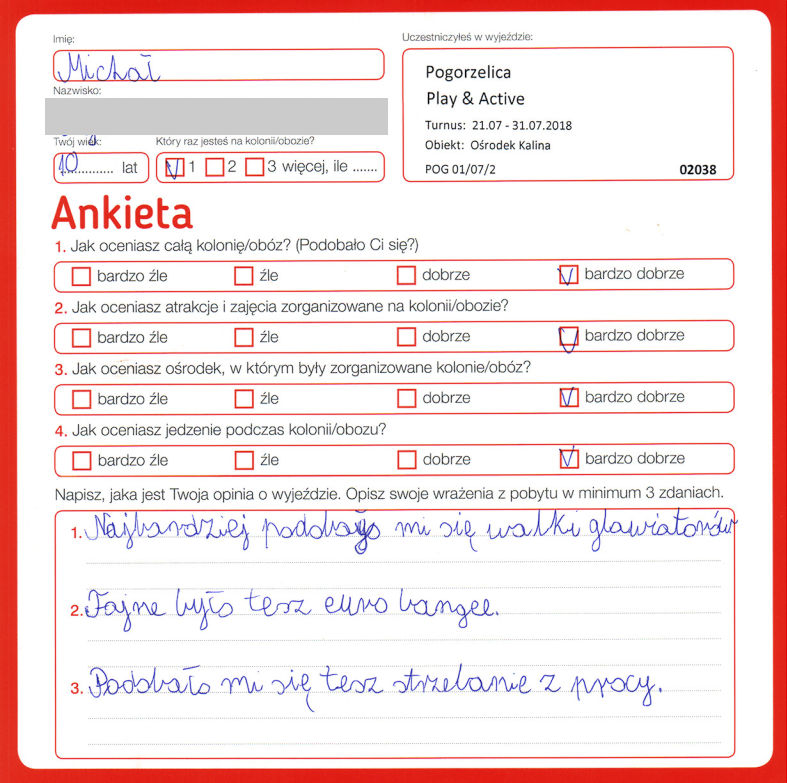 Imię:
Michał
Nazwisko:
Twój wiek:
10 lat
Który raz jesteś na kolonii/obozie?
1 2 3 więcej, ile .......
Uczestniczyłeś w wyjeździe:
Pogorzelica
Play & Active
Turnus: 21.07 - 31.07.2018
Obiekt: Ośrodek Kalina
POG 01/07/2 02038
Ankieta
1. Jak oceniasz całą kolonię/obóz? (Podobało Ci się?)
bardzo źle źle dobrze bardzo dobrze
2. Jak oceniasz atrakcje i zajęcia zorganizowane na kolonii/obozie?
bardzo źle źle dobrze bardzo dobrze
3. Jak oceniasz ośrodek, w którym były zorganizowane kolonie/obóz?
bardzo źle źle dobrze bardzo dobrze
4. Jak oceniasz jedzenie podczas kolonii/obozu?
bardzo źle źle dobrze bardzo dobrze
Napisz, jaka jest Twoja opinia o wyjeździe. Opisz swoje wrażenia z pobytu w minimum 3 zdaniach.
1. Najbardziej podobały mi się walki glawiatorów
2. Fajne było tesz euro bangee.
3. Podobało mi się tesz strzelanie z procy.